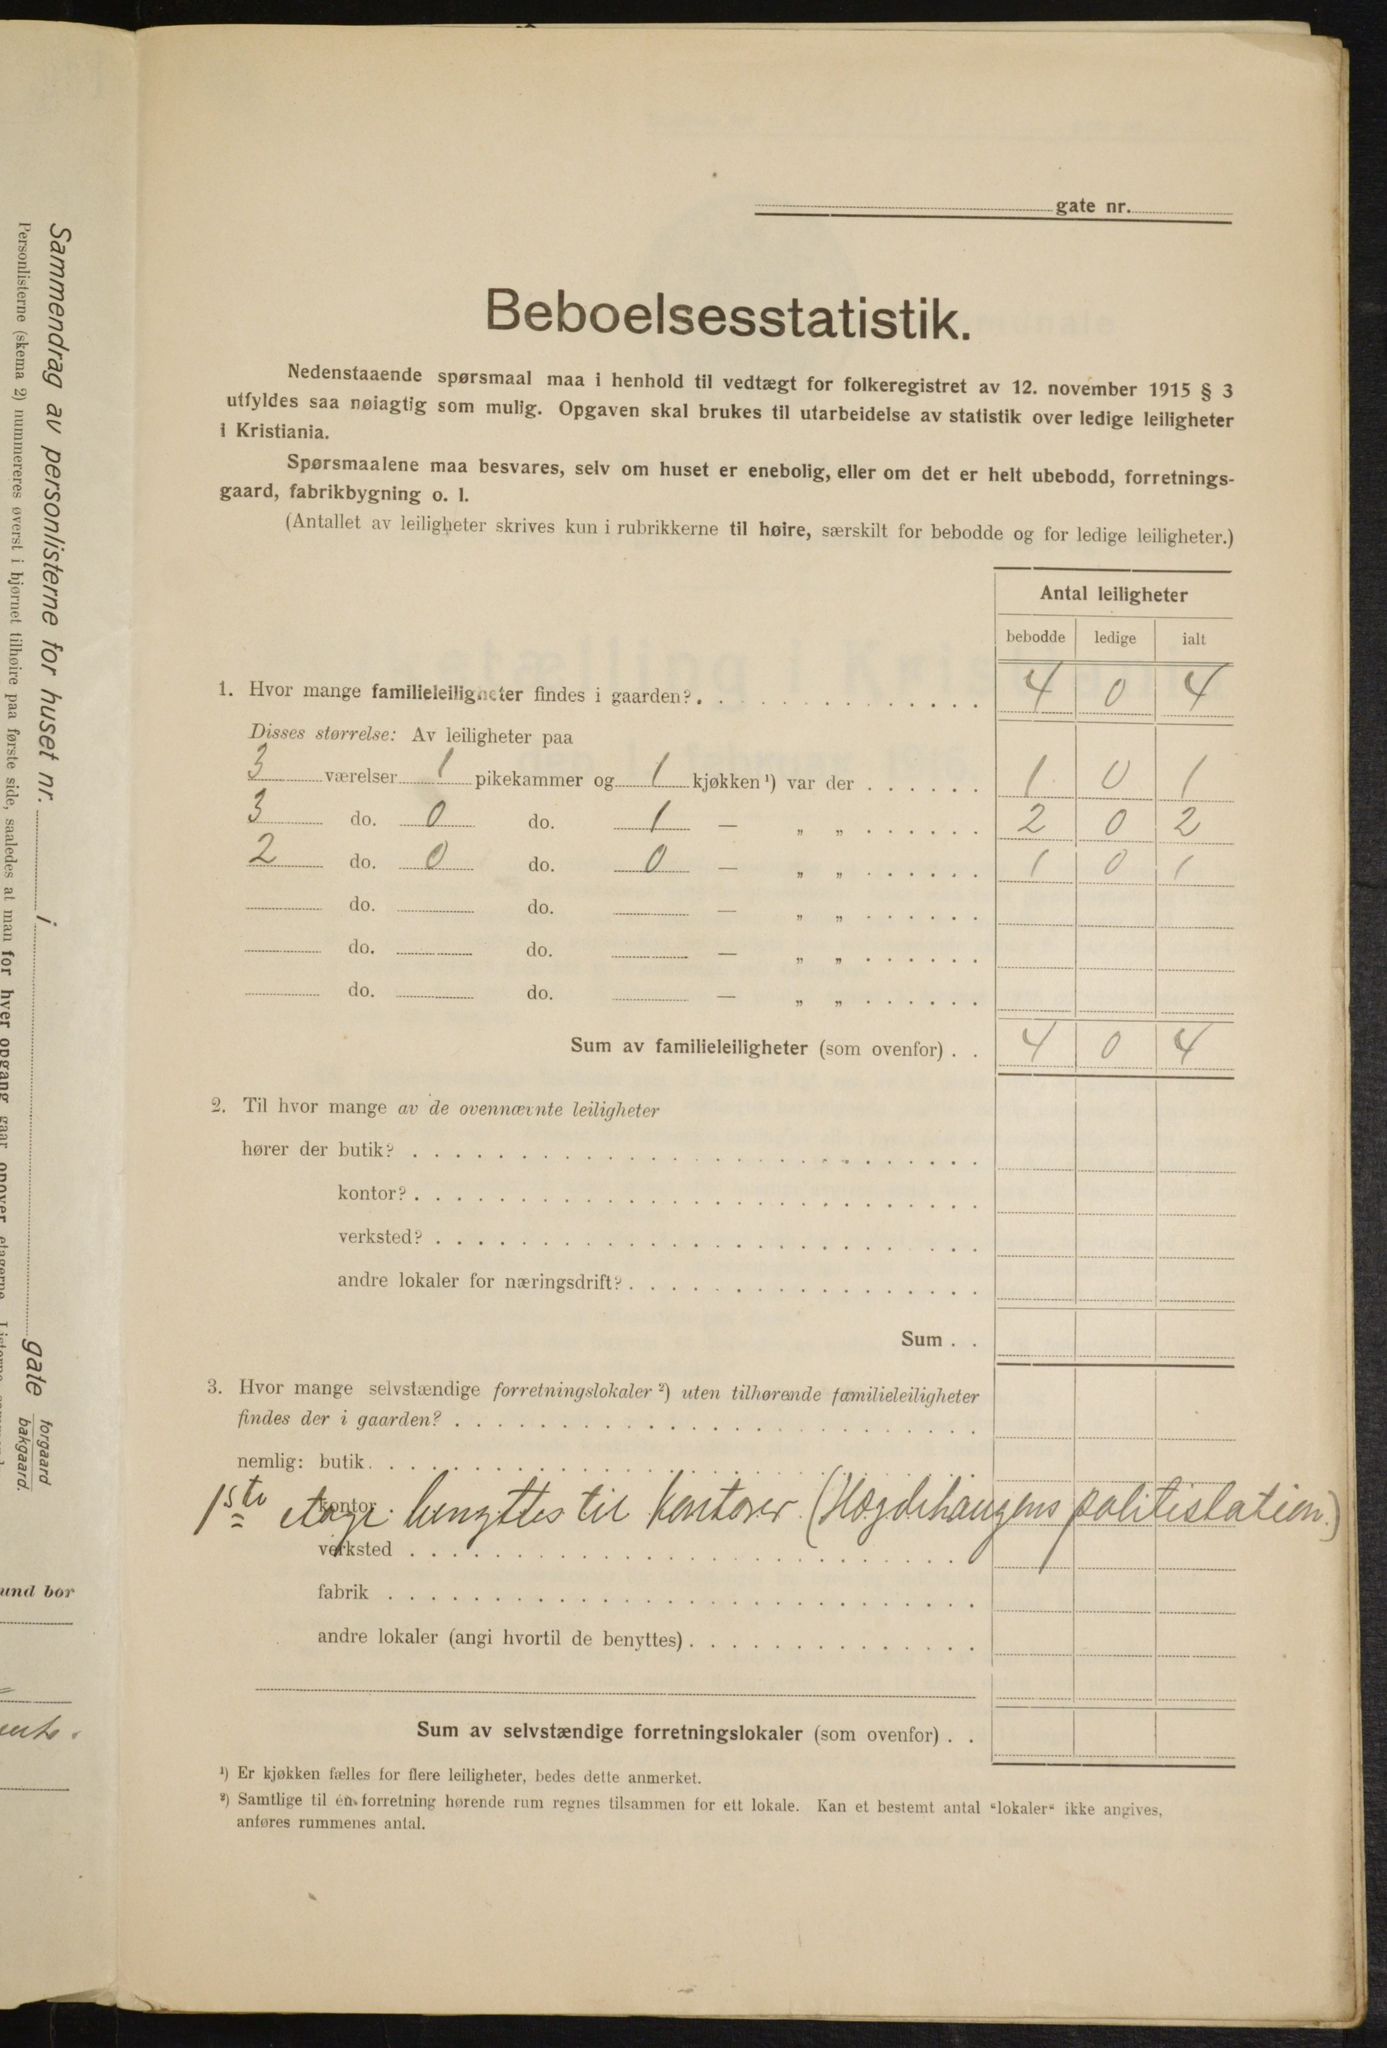 gate nr.
Beboelsesstatistik.
Nedenstaaende spørsmaal maa i henhold til vedtægt for folkeregistret av 12. november 1915 § 3
utfyldes saa nøiagtig som mulig. Opgaven skal brukes til utarbeidelse av statistik over ledige leiligheter
i Kristiania.
Spørsmaalene maa besvares, selv om huset er enebolig, eller om det er helt ubebodd, forretnings-
gaard, fabrikbygning o. l.
(Antallet av leiligheter skrives kun i rubrikkerne til høire, særskilt for bebodde og for ledige leiligheter.)
Antal leiligheter
bebodde ledige ialt
1. Hvor mange familieleiligheter findes i gaarden? 4 0 4
Disses størrelse: Av leiligheter paa
3 værelser 1 pikekammer og 1 kjøkken ¹) var der 1 0 1
3 do. 0 do. 1 — „ „ 2 0 2
2 do. 0 do. 0 — „ „ 1 0 1
do. do. — „ „
do. do. — „ „
do. do. — „ „
Sum av familieleiligheter (som ovenfor) . . 4 0 4
2. Til hvor mange av de ovennævnte leiligheter
hører der butik?
kontor?
verksted?
andre lokaler for næringsdrift?
Sum . .
3. Hvor mange selvstændige forretningslokaler ²) uten tilhørende familieleiligheter
findes der i gaarden?
nemlig: butik
kontor
1ste etage benyttes til kontorer (Hægdehaugens politistation.)
verksted
fabrik
andre lokaler (angi hvortil de benyttes)
Sum av selvstændige forretningslokaler (som ovenfor) . .
¹) Er kjøkken fælles for flere leiligheter, bedes dette anmerket.
²) Samtlige til én forretning hørende rum regnes tilsammen for ett lokale. Kan et bestemt antal "lokaler" ikke angives,
anføres rummenes antal.
Sammendrag av personlisterne for huset nr. i gate forgaard bakgaard.
Personlisterne (skema 2) nummereres øverst i hjørnet tilhøire paa første side, saaledes at man for hver opgang gaar opover etagerne.
und bør